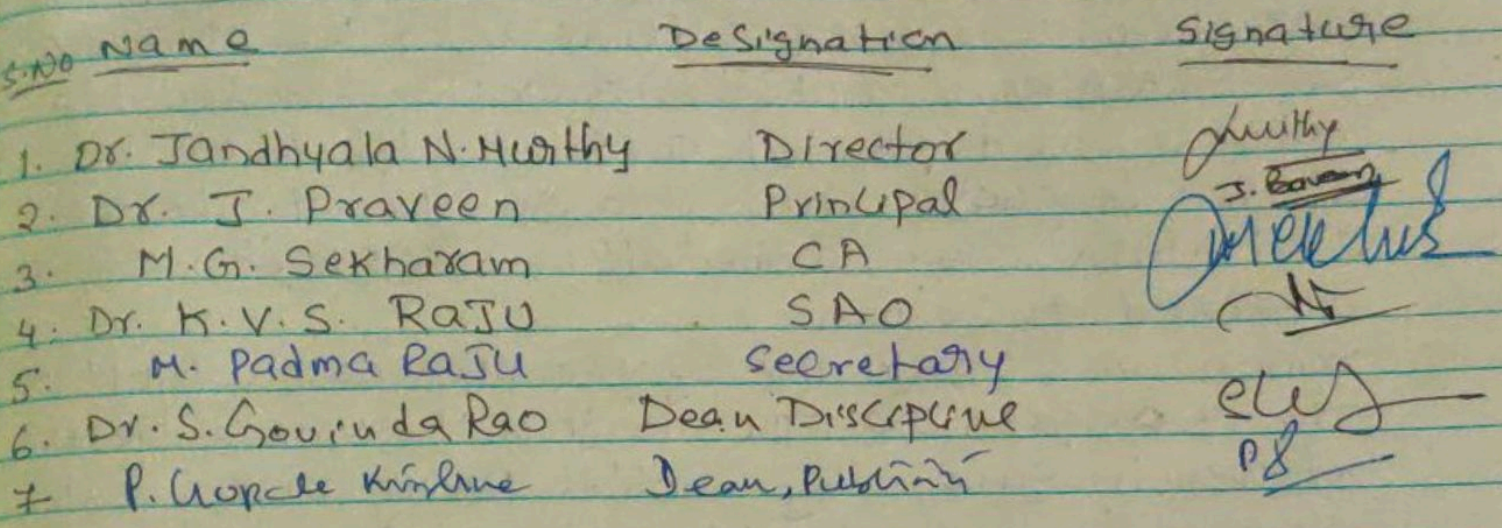 S.NO Name Designation Signature
1. Dr. Jandhyala N. Murthy Director Murthy
2. Dr. J. Praveen Principal J.
3. M.G. Sekharam CA
4. Dr. K.V.S. RaJU SAO
5. M. Padma RaJU Secretary
6. Dr. S. Govinda Rao Dean Discipline
7 P. Gopala Krishna Dean,